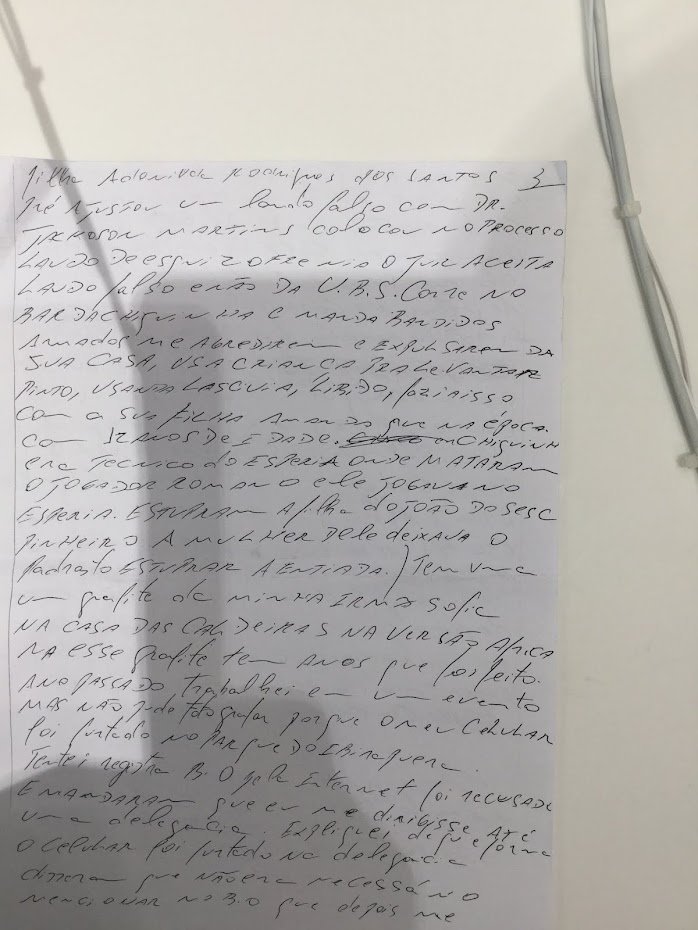 filha Adenilda Rodrigues dos SANTOS 3
Até AJUSTOU um laudo falso com DR.
JACKOSON MARTINS COLOCOU NO PROCESSO
LAUDO DE ESQUIZOFRENIA O JUIZ ACEITA
LAUDO falso DA U.B.S. Come NO
BAR DA CHIQUINHA E MANDA BANDIDOS
AMADOS ME AGREDIREM E EXPULSEREM DA
SUA CASA, USA CRIANÇA PRA LEVANTAR
PINTO, USANDO LASCIVIA, LIBIDO, fazia ISSO
COM A SUA FILHA AMANDA que NA ÉPOCA
COM 12 ANOS DE IDADE. CHIQUINH
era TECNICO do ESPERIA ONDE MATARAM
O JOGADOR ROMANO ele JOGAVA NO
ESPERIA. ESTUPRAM A filha do JOÃO DO SESC
PINHEIRO A MULHER Dele deixava O
PADRASTO ESTUPRAR A ENTIADA. ) Tem uma
um grafite da MINHA IRMÃ Sofie
NA CASA DAS CALDEIRAS NA VERSÃO AfriCA
NA ESSE grafite tem ANOS que foi feito.
ANO PASSADO trabalhei em um evento
MAS NÃO pude fotografar porque O meu CELULAR
foi furtado NO PARQUE DO IBIRAPUERA.
Tentei registra B.O pela Internet foi recusado
E MANDARAM que eu me dirigisse ATÉ
uma delegacia. Expliquei de que forma
O CELULAR foi furtado na delegacia
disseram que NÃO era necessáRIO
MENCIONAR NO B.O que depois me